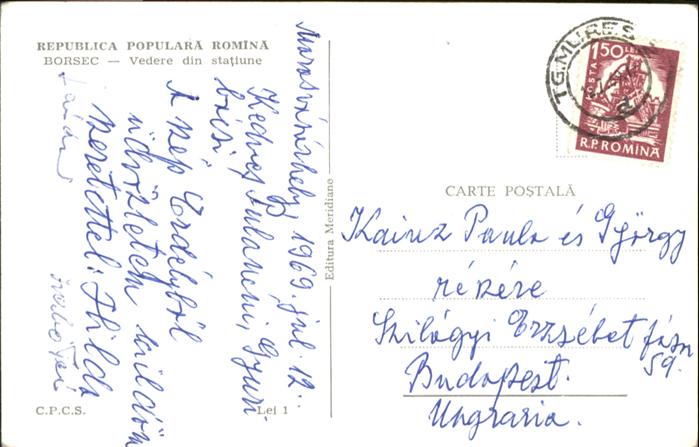 REPUBLICA POPULARĂ ROMÎNĂ
BORSEC — Vedere din stațiune
Marosvásárhely, 1969. júl. 12.
Kedves Pulaneni, Gyuri
bácsi,
A szép Erdélyből
üdvözletem küldöm
szeretettel: Ildi
C.P.C.S.
Lei 1
Editura Meridiane
TG. MUREȘ
1,50 LEI
POSTA
R.P.ROMINA
CARTE POȘTALĂ
Kainz Paula és György
részére
Szilágyi Erzsébet fasor
59.
Budapest.
Ungraria.